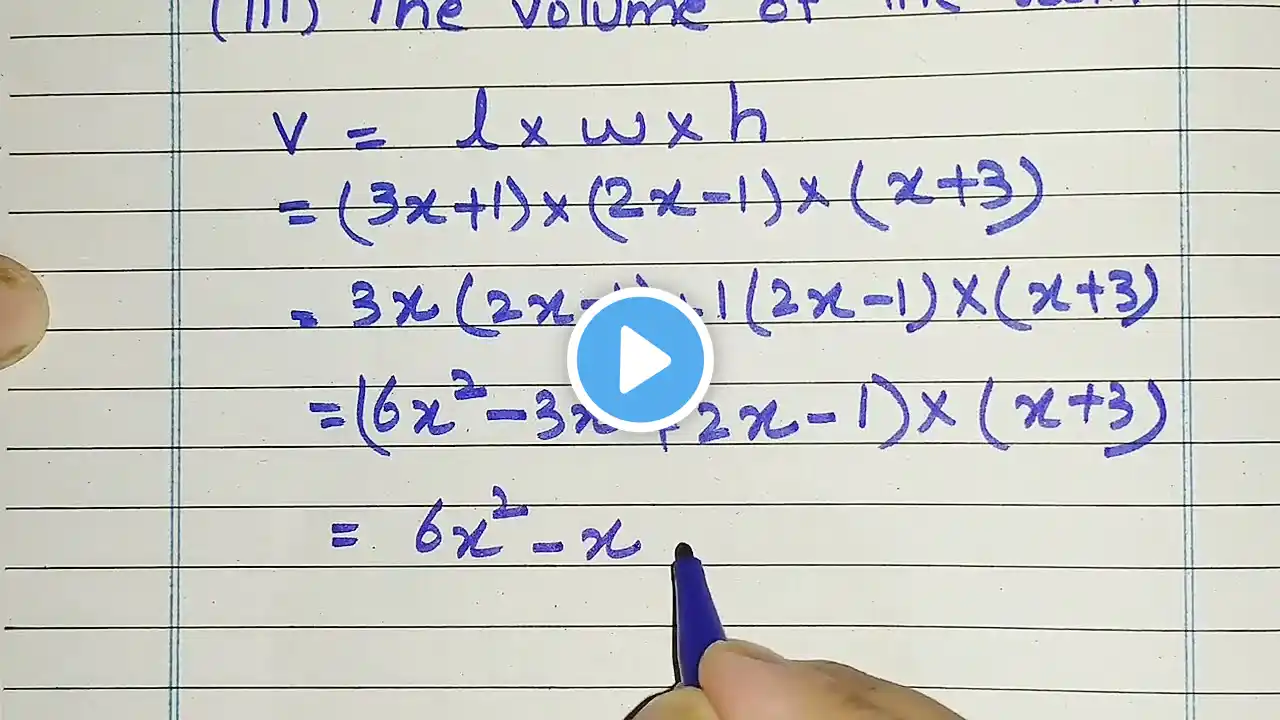 (iii) The volume of the
V = l x w x h
= (3x+1) x (2x-1) x (x+3)
= 3x (2x-1) + 1 (2x-1) x (x+3)
= (6x² - 3x + 2x - 1) x (x+3)
= 6x² - x